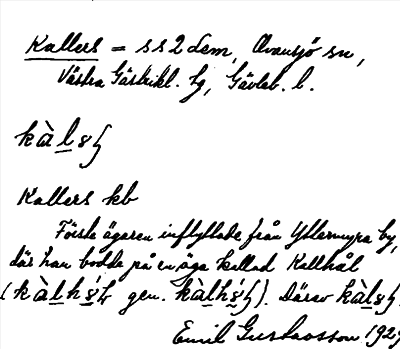 Kallers = ss 2 Lem, Ovansjö sn,
Västra Gästrikl. tg, Gävleb. l.
Kallers kb
Förste ägaren inflyttade från Yttermyra by,
där han bodde på en äga kallad Kallhål
gen. Därav
Emil Gustavsson 1929